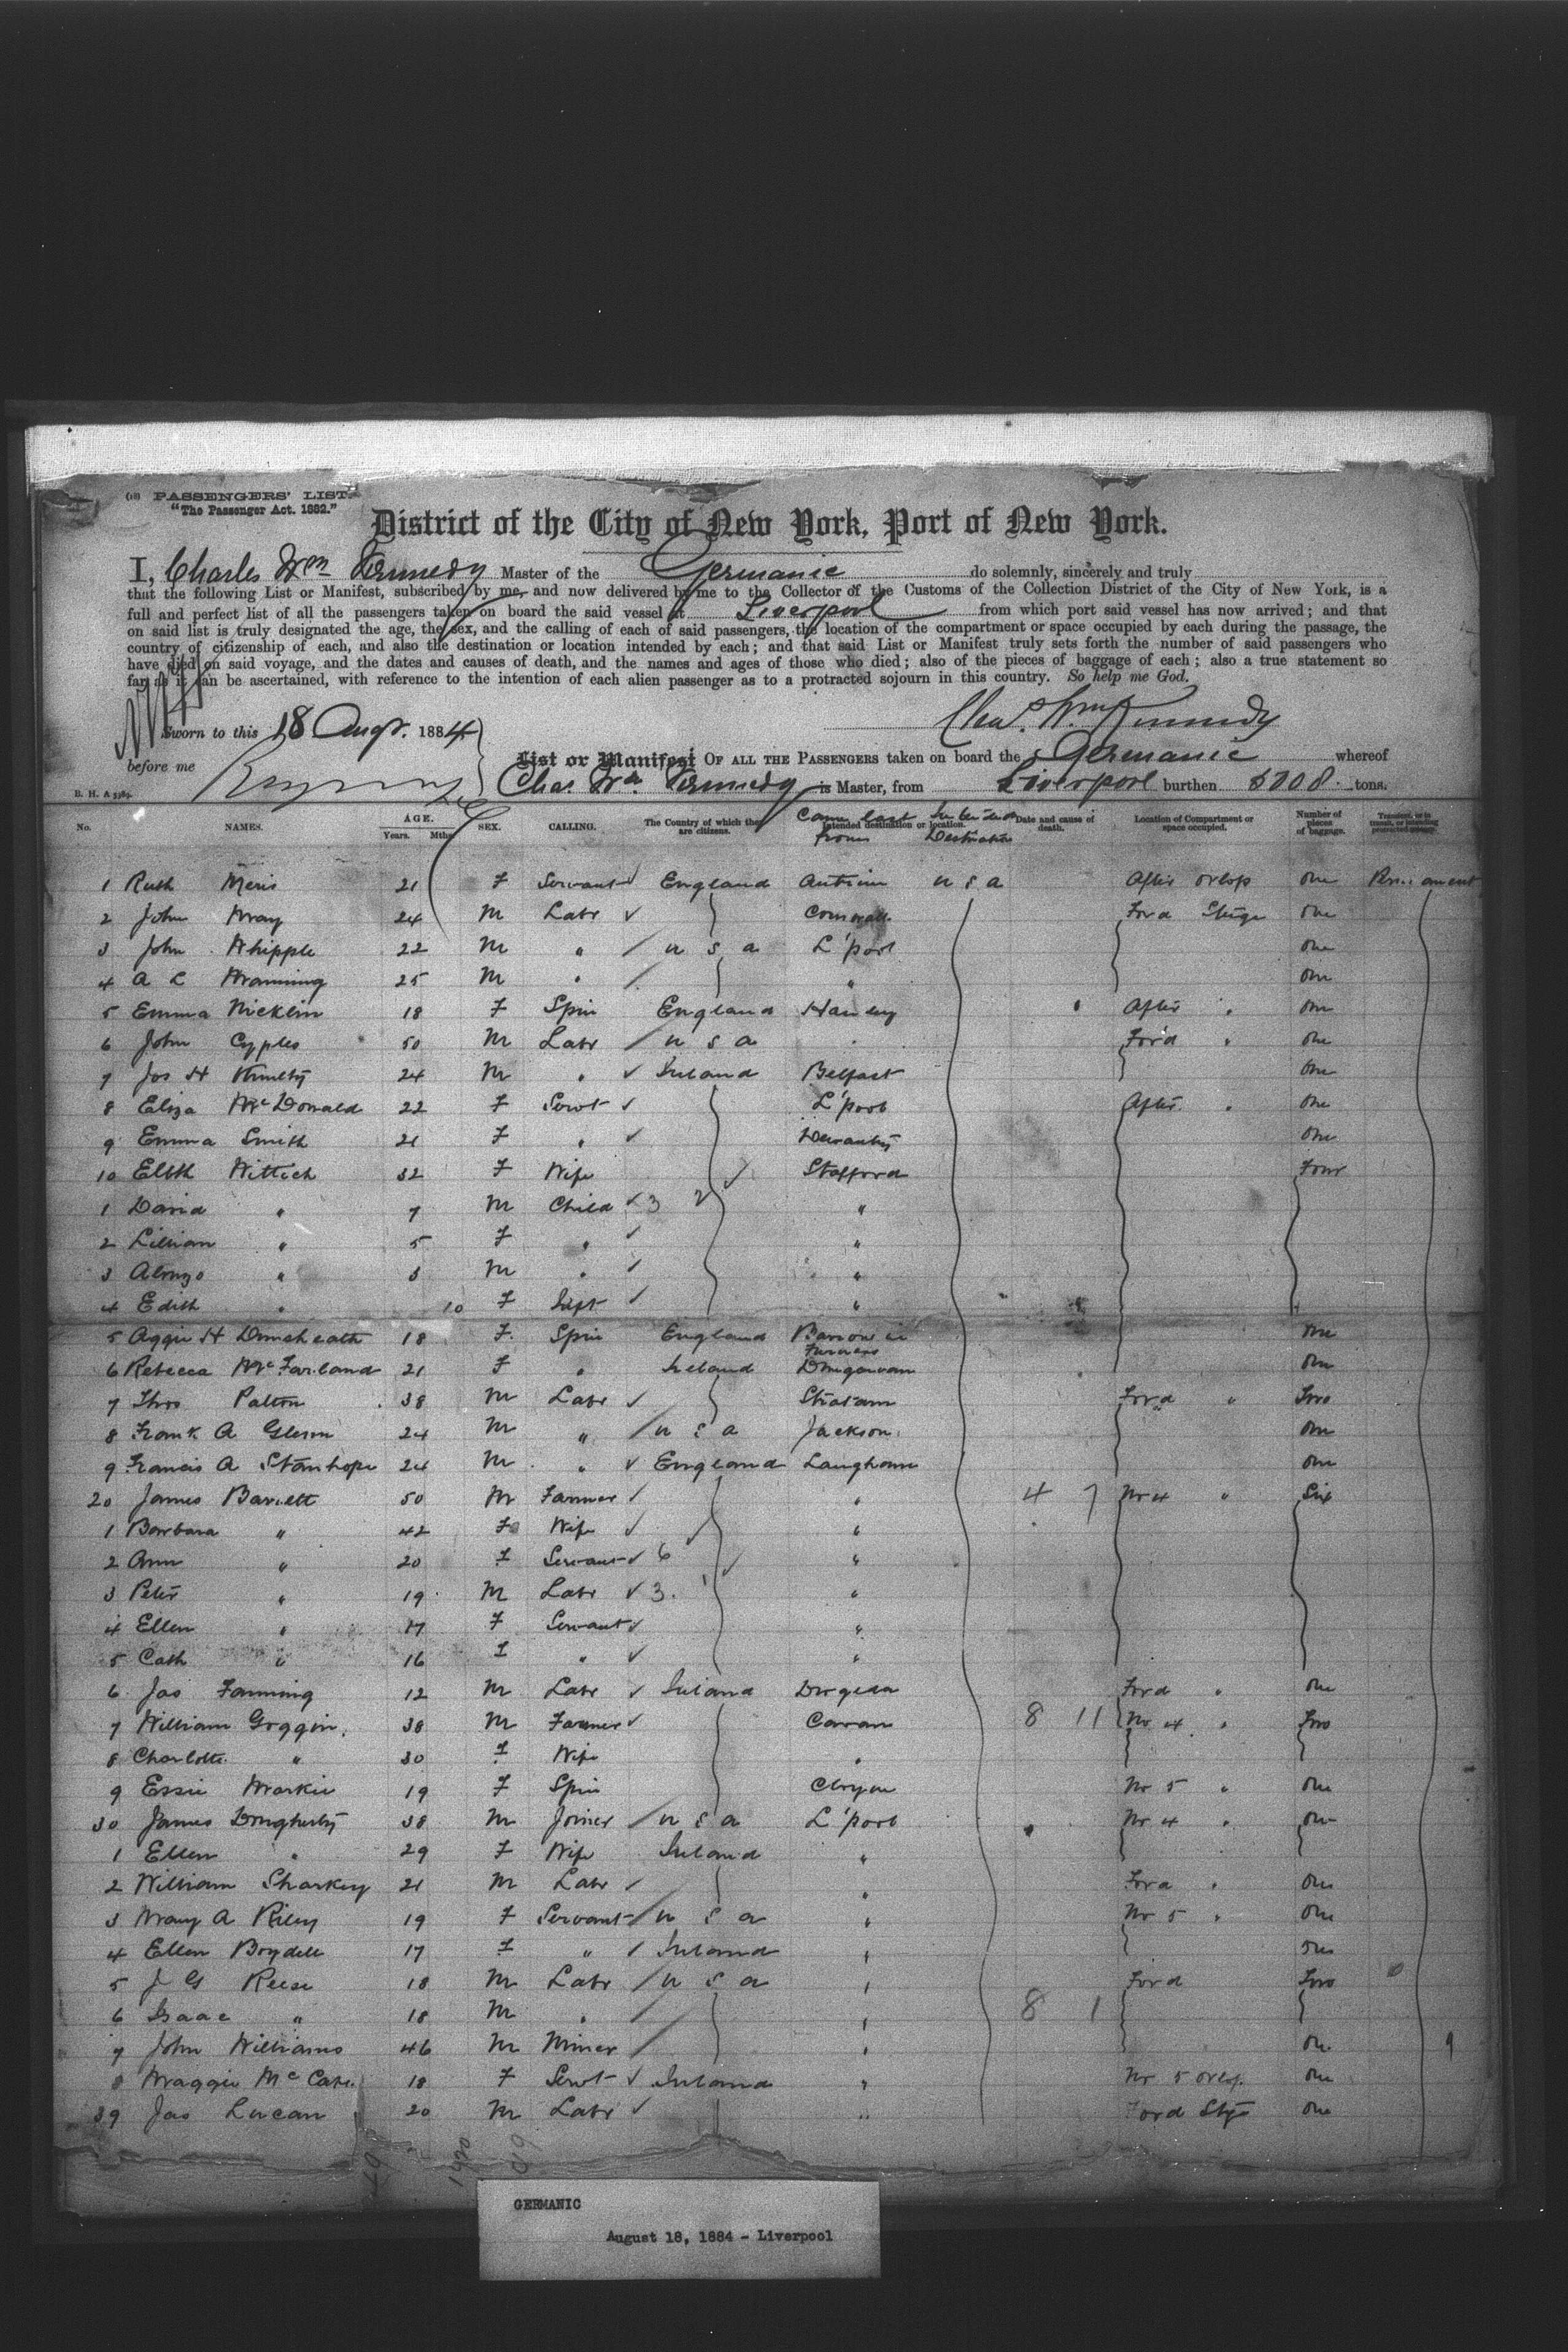 (10) PASSENGERS' LIST.
"The Passenger Act. 1882."
District of the City of New York, Port of New York.
I, Charles Wm Kennedy Master of the Germanic do solemnly, sincerely and truly
that the following List or Manifest, subscribed by me, and now delivered by me to the Collector of the Customs of the Collection District of the City of New York, is a
full and perfect list of all the passengers taken on board the said vessel at Liverpool from which port said vessel has now arrived; and that
on said list is truly designated the age, the sex, and the calling of each of said passengers, the location of the compartment or space occupied by each during the passage, the
country of citizenship of each, and also the destination or location intended by each; and that said List or Manifest truly sets forth the number of said passengers who
have died on said voyage, and the dates and causes of death, and the names and ages of those who died; also of the pieces of baggage of each; also a true statement so
far as it can be ascertained, with reference to the intention of each alien passenger as to a protracted sojourn in this country. So help me God.
Sworn to this 18 Augt. 1884
Chas. Wm Kennedy
before me
List or Manifest OF ALL THE PASSENGERS taken on board the Germanic whereof
Chas. Wm. Kennedy is Master, from Liverpool burthen 5008 tons.
No. NAMES. AGE. Years. Mths. SEX. CALLING. The Country of which they are citizens. Intended destination or location. Came last from Intended Destination Date and cause of death. Location of Compartment or space occupied. Number of pieces of baggage.
1 Ruth F Servant England Antrim U S A After Orlop One Permanent
2 John 24 M Labr Cornwall Ford Stge One
3 John Whipple 22 M " U S A L'pool One
4 A L Manning 25 M " " One
5 Emma Nicklin 18 F Spin England Hanley After " One
6 John Cyples 50 M Labr U S A " Ford " One
7 Jos H 24 M " Ireland Belfast One
8 Eliza McDonald 22 F Servt L'pool After " One
9 Emma Smith 21 F " One
10 Elbth Wittich 32 F Wife Stafford Four
1 David " 7 M Child 3 "
2 Lillian " 5 F " "
3 Alonzo " 3 M " "
4 Edith " 10 F Inft "
5 Aggie H 18 F Spin England Barrow in Furness One
6 Rebecca McFarland 21 F " Ireland One
7 Thos Patton 38 M Labr Ford " Two
8 Frank A 24 M " U S A Jackson One
9 Francis A Stanhope 24 M " England Langham One
20 James Barrett 50 M Farmer " 4 7 No 4 " Six
1 Barbara " 42 F Wife "
2 Ann " 20 F Servant 6 "
3 Peter " 19 M Labr 3 "
4 Ellen " 17 F Servant "
5 Cath " 16 F " "
6 Jas Fanning 12 M Labr Ireland Ford " One
7 William Goggin 38 M Farmer Cavan 8 11 No 4 " Two
8 Charlotte " 30 F Wife "
9 Essie 19 F Spin No 5 " One
30 James Dougherty 38 M Joiner U S A L'pool No 4 " One
1 Ellen " 29 F Wife Ireland "
2 William Sharkey 21 M Labr " Ford " One
3 Mary A Riley 19 F Servant U S A " No 5 " One
4 Ellen Boydell 17 F " Ireland " One
5 J G Reese 18 M Labr U S A " Ford Two
6 Isaac " 18 M " " 8 1
7 John Williams 46 M Miner " One
8 Maggie McCabe 18 F Servt Ireland " No 5 Orlop One
39 Jas Lucan 20 M Labr " Ford Stge One
GERMANIC
August 18, 1884 - Liverpool